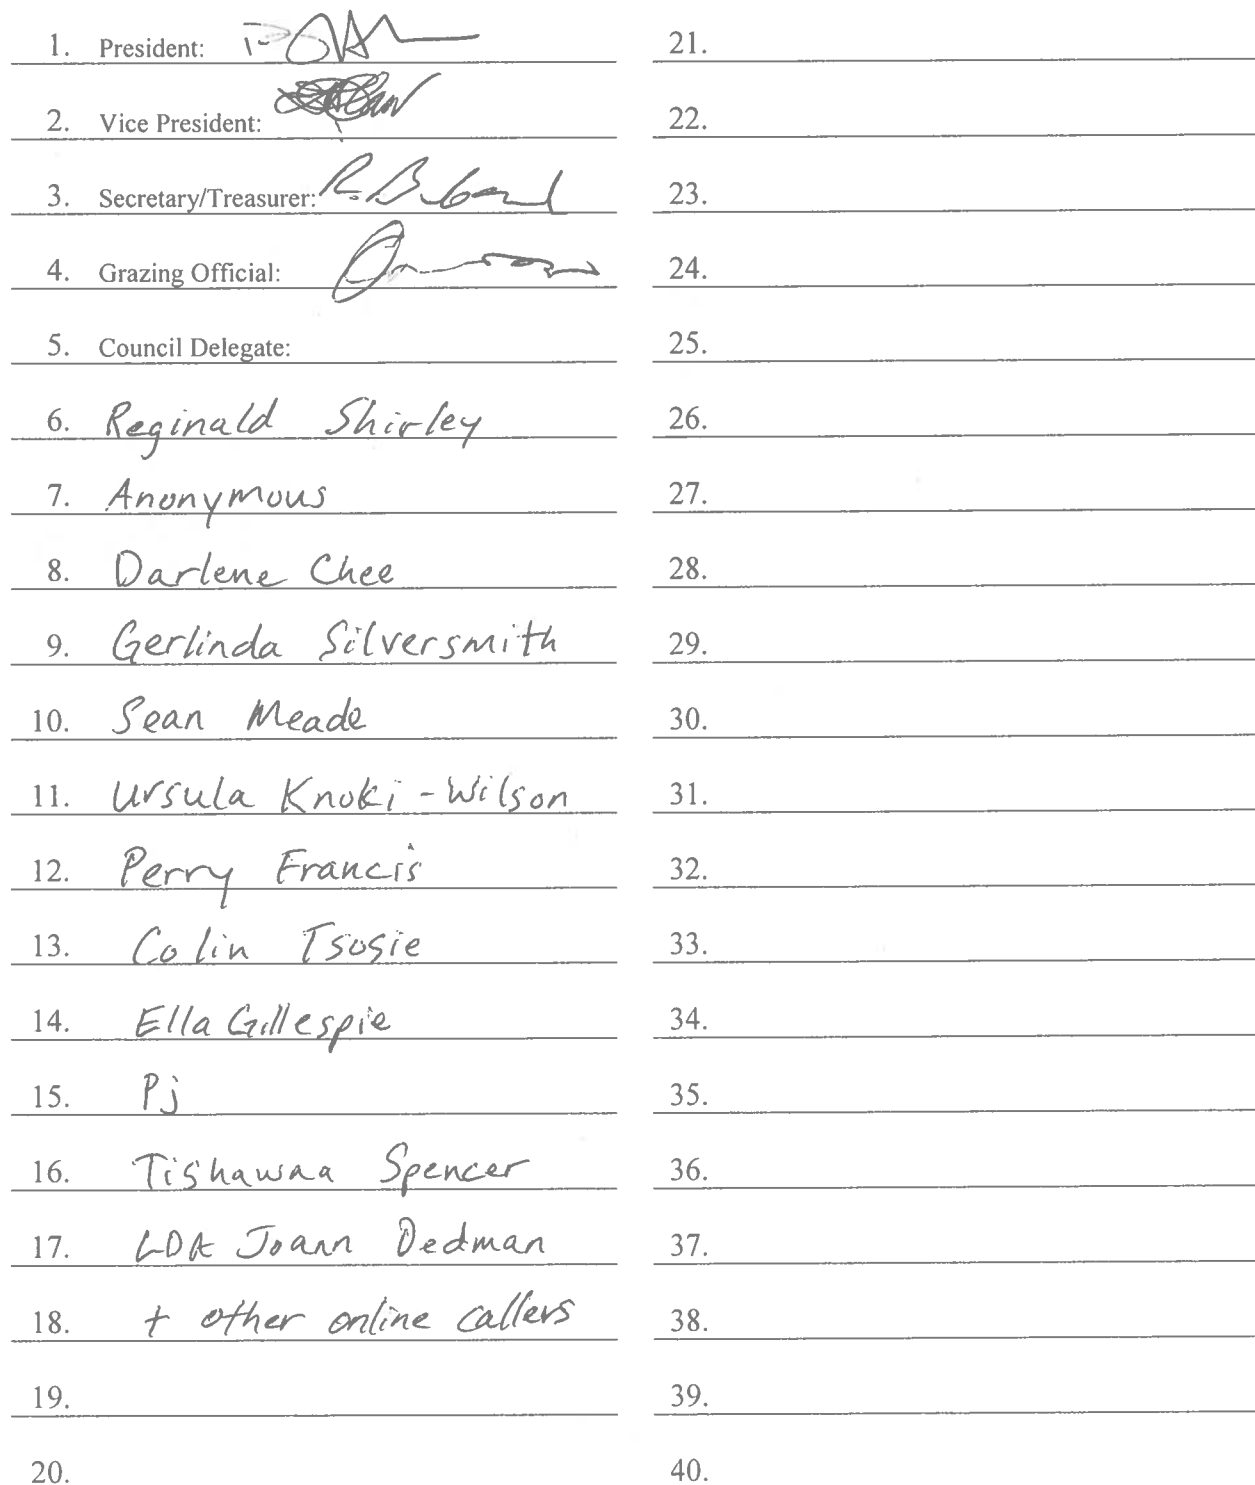 1. President:
2. Vice President:
3. Secretary/Treasurer:
4. Grazing Official:
5. Council Delegate:
6. Reginald Shirley
7. Anonymous
8. Darlene Chee
9. Gerlinda Silversmith
10. Sean Meade
11. Ursula Knoki-Wilson
12. Perry Francis
13. Colin Tsosie
14. Ella Gillespie
15. Pj
16. Tishawna Spencer
17. LDA Joann Dedman
18. + other online callers
19.
20.
21.
22.
23.
24.
25.
26.
27.
28.
29.
30.
31.
32.
33.
34.
35.
36.
37.
38.
39.
40.